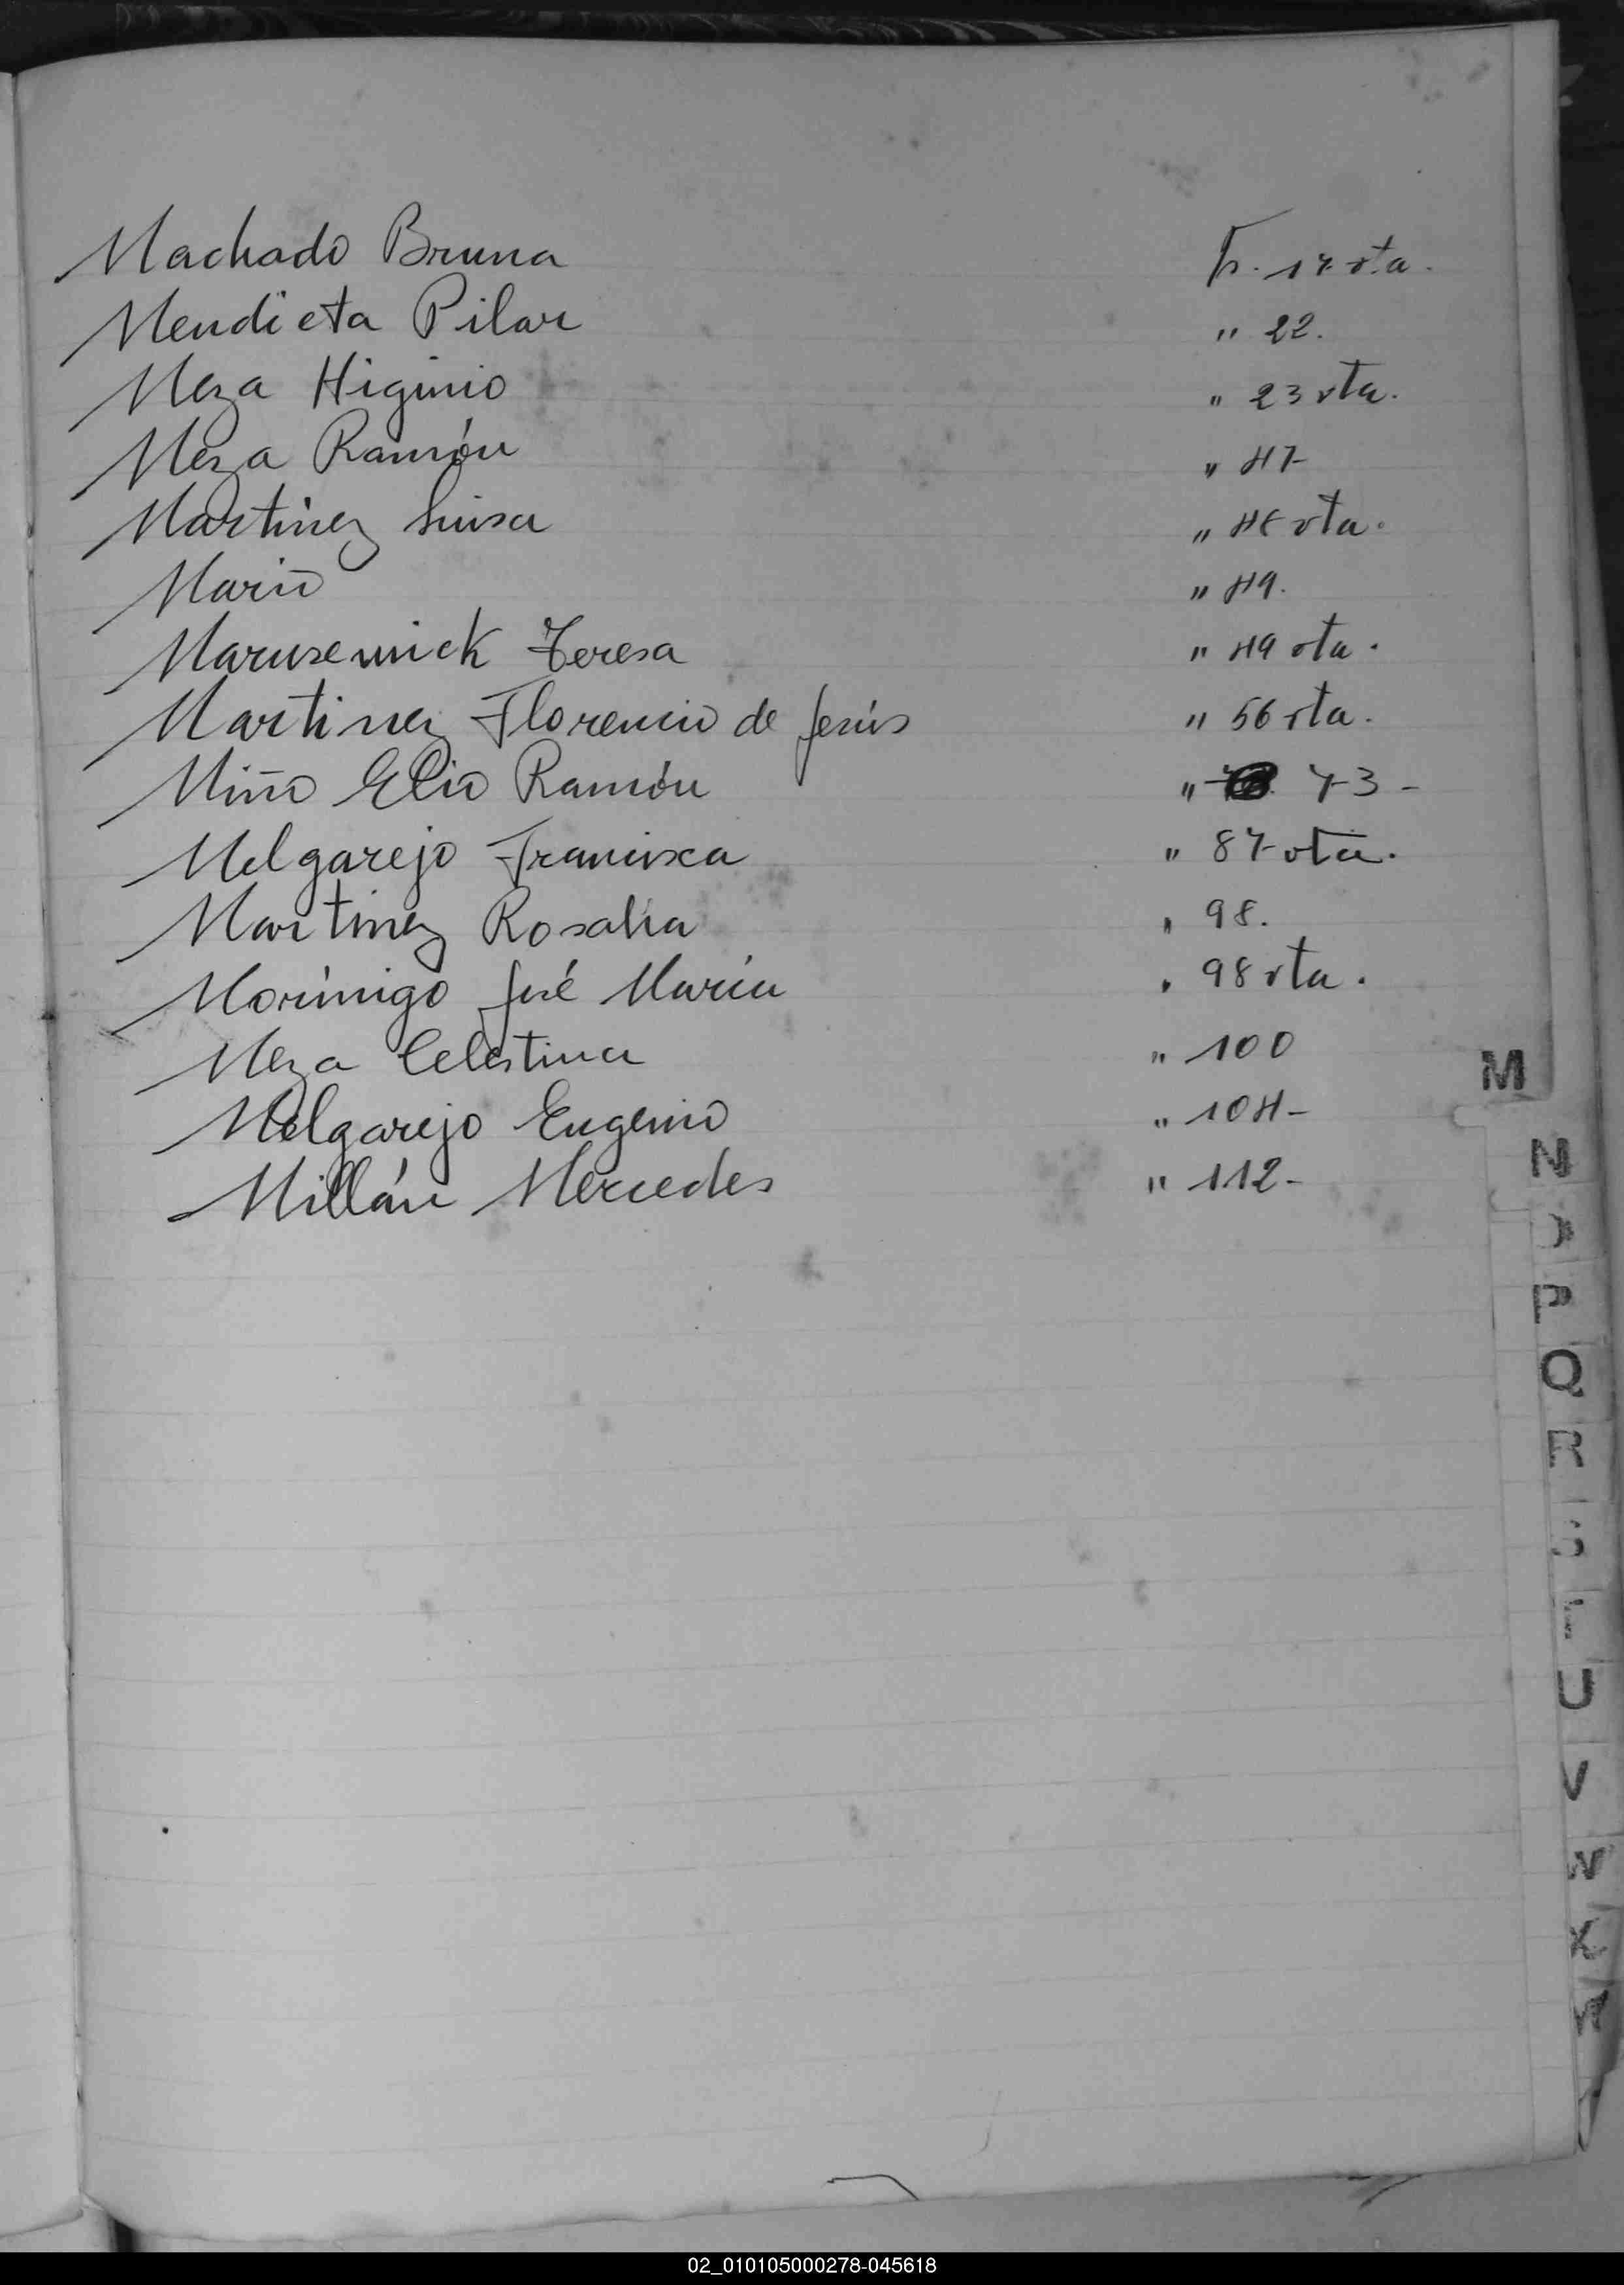 Machado Bruna Fs. 17 vta.
Mendieta Pilar " 22.
Meza Higinio " 23 vta.
Meza Ramón " 47
Martinez Luisa " 48 vta.
Mario " 49.
Marusewick Teresa " 49 vta.
Martinez Florencio de Jesús " 56 vta.
Miño Elio Ramón " 73-
Melgarejo Francisca " 87 vta.
Martinez Rosalia " 98.
Morínigo José María " 98 vta.
Meza Celestina " 100
Melgarejo Eugenio " 104-
Millán Mercedes " 112-
M
N
P
Q
R
S
T
U
V
W
X
02_010105000278-045618